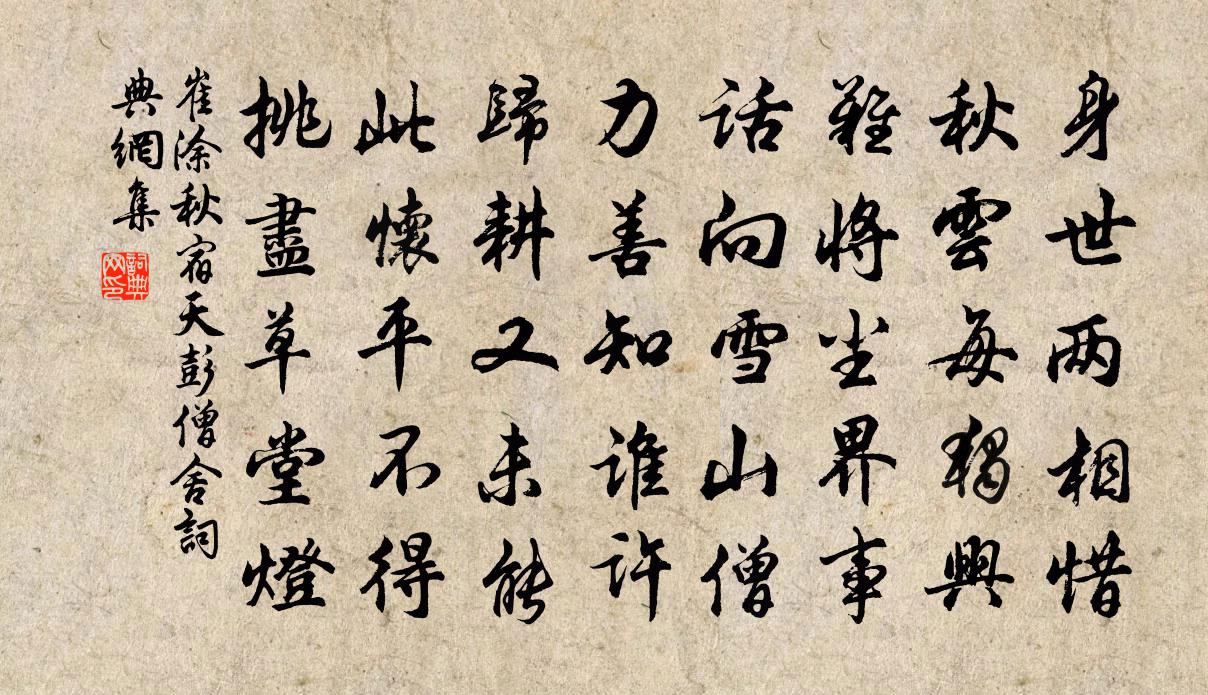 身世两相惜
秋雲每獨興
難將尘界事
話向雪山僧
力善知誰許
歸耕又未能
此懷平不得
挑盡草堂燈
崔涂秋宿天彭僧舍詞
典網集
詞典
网印